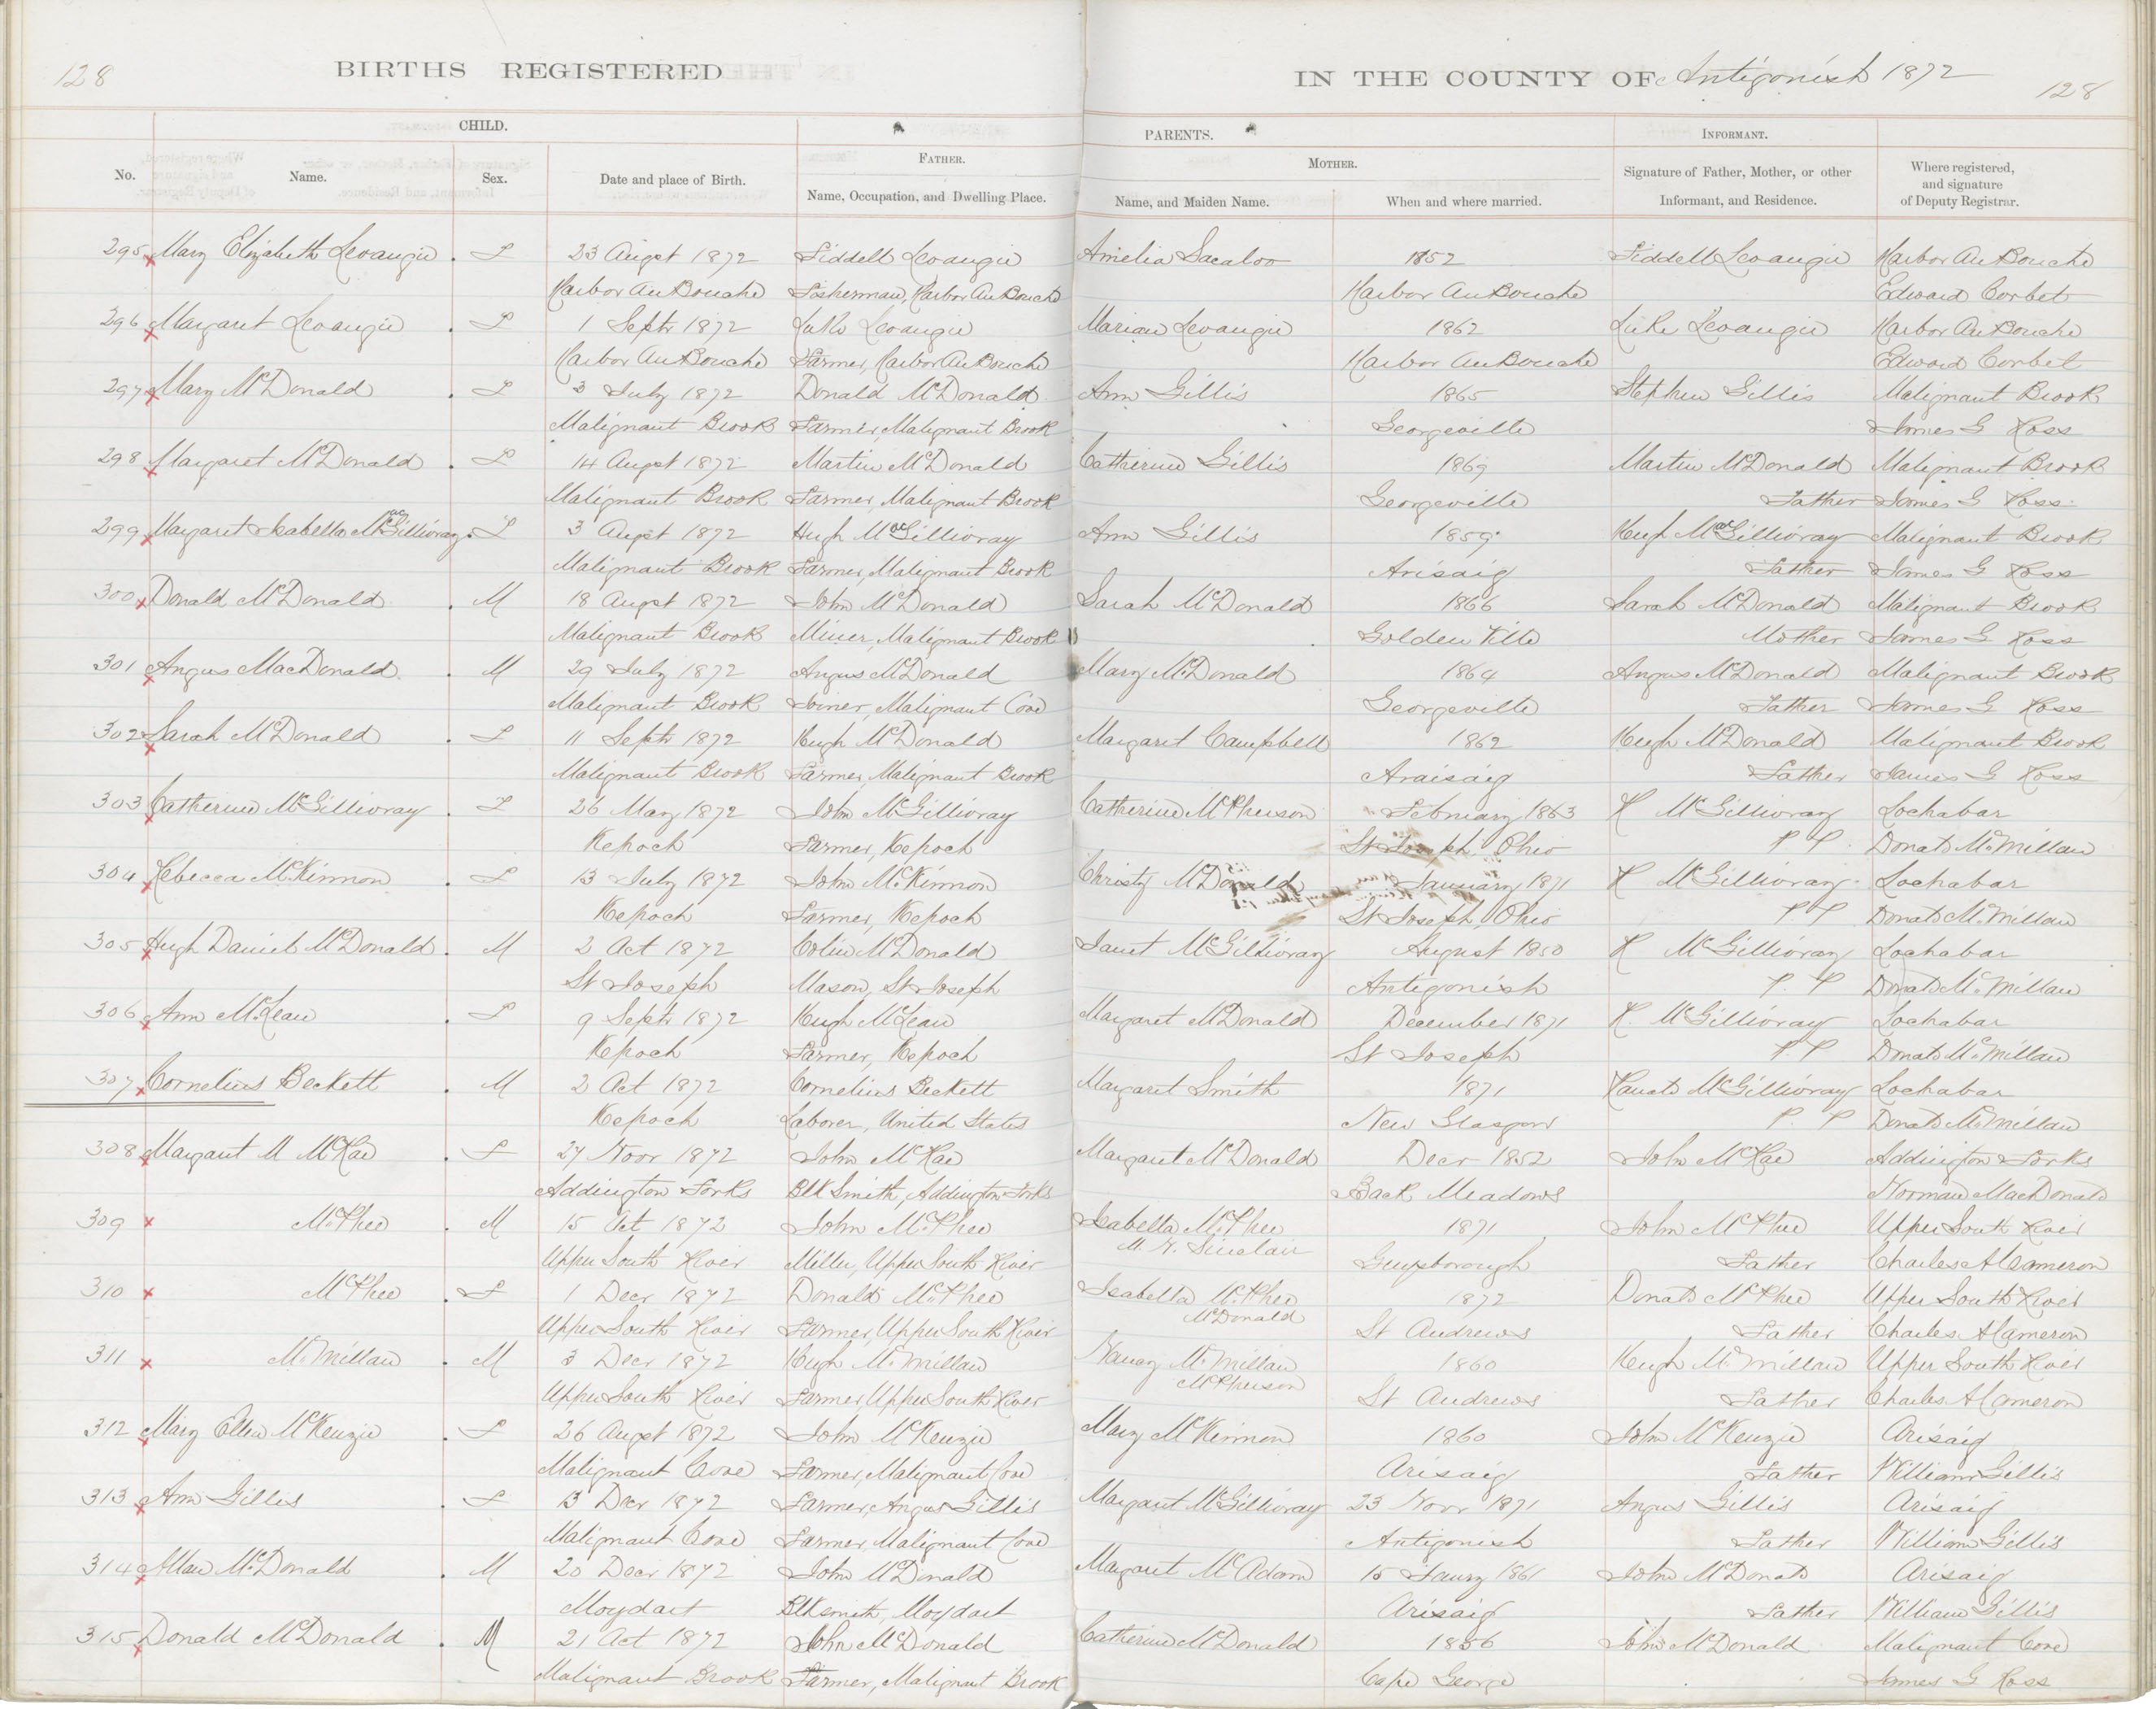 128 BIRTHS REGISTERED IN THE COUNTY OF Antigonish 1872 128
CHILD. PARENTS. INFORMANT.
FATHER. MOTHER.
No. Name. Sex. Date and place of Birth. Name, Occupation, and Dwelling Place. Name, and Maiden Name. When and where married. Signature of Father, Mother, or other Informant, and Residence. Where registered, and signature of Deputy Registrar.
295 Mary Elizabeth Levangie F 23 Augst 1872 Fiddell Levangie Amelia 1852 Fiddell Levangie Harbor Au Bouche
Harbor Au Bouche Fisherman, Harbor Au Bouche Harbor Au Bouche Edward Corbet
296 Margaret Levangie F 1 Septr 1872 Luke Levangie Marian Levangie 1862 Luke Levangie Harbor Au Bouche
Harbor Au Bouche Farmer, Harbor Au Bouche Harbor Au Bouche Edward Corbet
297 Mary McDonald F 3 July 1872 Donald McDonald Ann Gillis 1865 Stephen Gillis Malignant Brook
Malignant Brook Farmer, Malignant Brook Georgeville James G Ross
298 Margaret McDonald F 14 Augst 1872 Martin McDonald Catherine Gillis 1869 Martin McDonald Malignant Brook
Malignant Brook Farmer, Malignant Brook Georgeville Father James G Ross
299 Margaret Isabella MacGillivray F 3 Augst 1872 Hugh MacGillivray Ann Gillis 1859 Hugh MacGillivray Malignant Brook
Malignant Brook Farmer, Malignant Brook Arisaig Father James G Ross
300 Donald McDonald M 18 Augst 1872 John McDonald Sarah McDonald 1866 Sarah McDonald Malignant Brook
Malignant Brook Miner, Malignant Brook Golden Ville Mother James G Ross
301 Angus MacDonald M 29 July 1872 Angus McDonald Mary McDonald 1864 Angus McDonald Malignant Brook
Malignant Brook Joiner, Malignant Cove Georgeville Father James G Ross
302 Sarah McDonald F 11 Septr 1872 Hugh McDonald Margaret Campbell 1862 Hugh McDonald Malignant Brook
Malignant Brook Farmer, Malignant Brook Araisaig Father James G Ross
303 Catherine McGillivray F 26 May 1872 John McGillivray Catherine McPherson February 1863 R McGillivray Lochabar
Kepoch Farmer, Kepoch St Joseph, Ohio P P Donald McMillan
304 Rebecca McKinnon F 13 July 1872 John McKinnon Christy McDonald January 1871 R McGillivray Lochabar
Kepoch Farmer, Kepoch St Joseph, Ohio P P Donald McMillan
305 Hugh Daniel McDonald M 2 Oct 1872 Colin McDonald Janet McGillivray August 1850 R McGillivray Lochabar
St Joseph Mason, St Joseph Antigonish P. P Donald McMillan
306 Ann McLean F 9 Septr 1872 Hugh McLean Margaret McDonald December 1871 R. McGillivray Lochabar
Kepoch Farmer, Kepoch St Joseph P. P Donald McMillan
307 Cornelius Beckett M 2 Oct 1872 Cornelius Beckett Margaret Smith 1871 Ranald McGillivray Lochabar
Kepoch Laborer, United States New Glasgow P. P Donald McMillan
308 Margaret M McRae F 27 Novr 1872 John McRae Margaret McDonald Decr 1852 John McRae Addington Forks
Addington Forks Blk Smith, Addington Forks Back Meadows Norman MacDonald
309 McPhee M 15 Oct 1872 John McPhee Isabella McPhee 1871 John McPhee Upper South River
M. N. Sinclair
Upper South River Miller, Upper South River Guysborough Father Charles A Cameron
310 McPhee F 1 Decr 1872 Donald McPhee Isabella McPhee 1872 Donald McPhee Upper South River
McDonald
Upper South River Farmer, Upper South River St Andrews Father Charles A Cameron
311 McMillan M 3 Decr 1872 Hugh McMillan Nancy McMillan 1860 Hugh McMillan Upper South River
McPherson
Upper South River Farmer, Upper South River St Andrews Father Charles A Cameron
312 Mary Ellen McKenzie F 26 Augst 1872 John McKenzie Mary McKinnon 1860 John McKenzie Arisaig
Malignant Cove Farmer, Malignant Cove Arisaig Father William Gillis
313 Ann Gillis F 13 Decr 1872 Farmer, Angus Gillis Margaret McGillivray 23 Novr 1871 Angus Gillis Arisaig
Malignant Cove Farmer, Malignant Cove Antigonish Father William Gillis
314 Allan McDonald M 20 Decr 1872 John McDonald Margaret McAdam 15 Jany 1861 John McDonald Arisaig
Moydart Blksmith, Moydart Arisaig Father William Gillis
315 Donald McDonald M 21 Oct 1872 John McDonald Catherine McDonald 1856 John McDonald Malignant Cove
Malignant Brook Farmer, Malignant Brook Cape George James G Ross